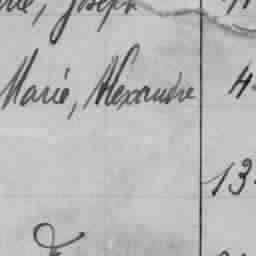 Joseph
Marié, Alexandre 4
13
F